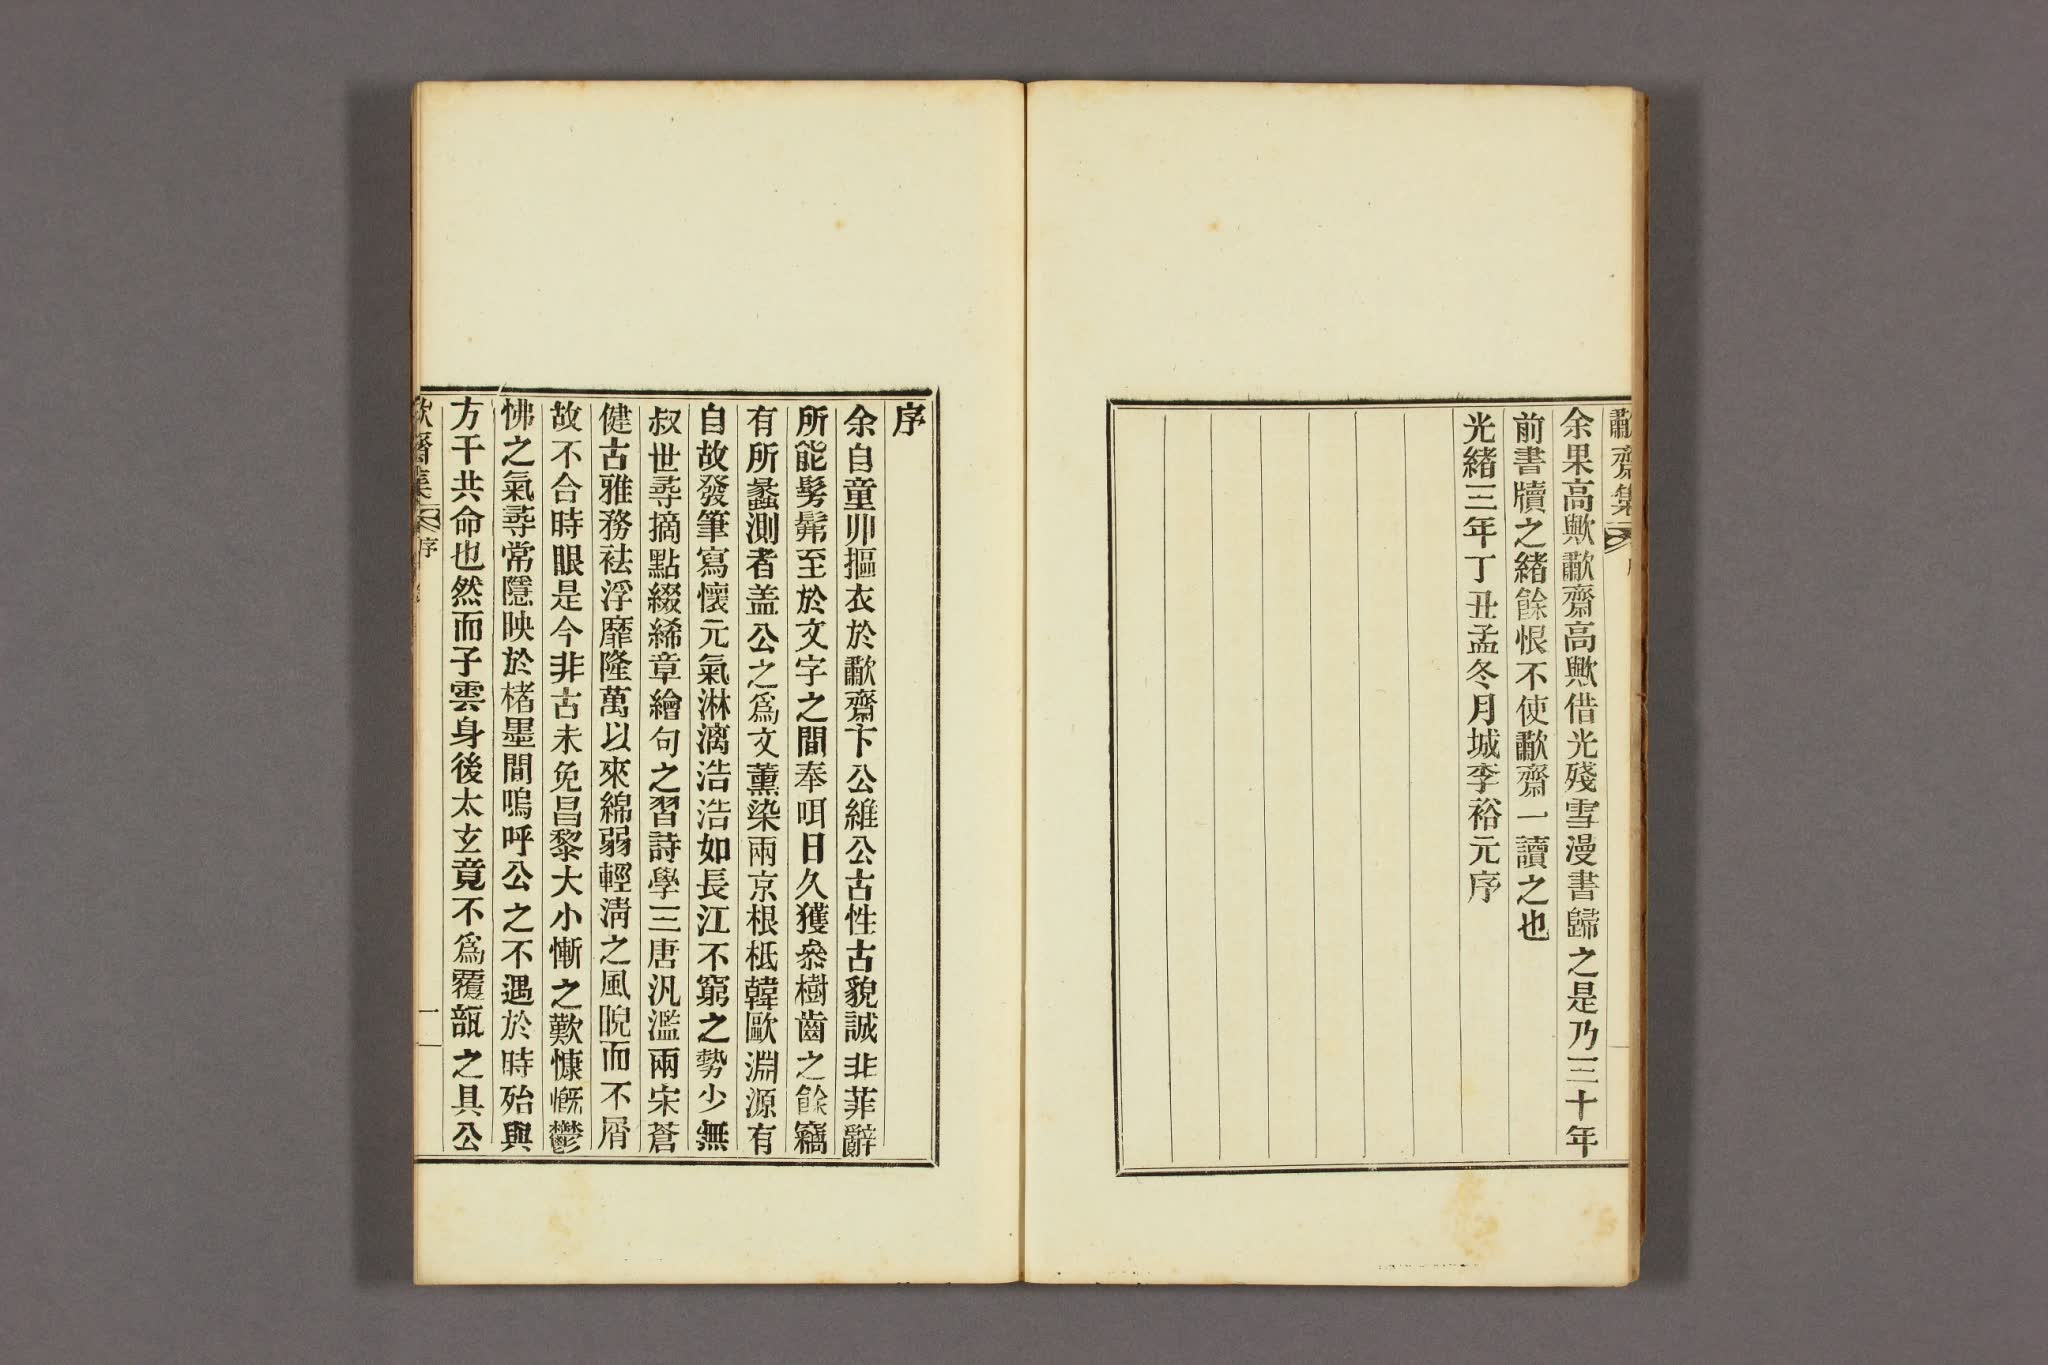 歗齋集
余果高歟歗齋高歟借光殘雪漫書歸之是乃三十年
前書牘之緖餘恨不使歗齋一讀之也
光緖三年丁丑孟冬月城李裕元序
序
余自童丱摳衣於歗齋卞公維公古性古貌誠非菲辭
所能髣髴至於文字之間奉咡日久獲叅樹齒之餘竊
有所蠡測者盖公之爲文薰染兩京根柢韓歐淵源有
自故發筆寫懷元氣淋漓浩浩如長江不窮之勢少無
叔世尋摘點綴絺章繪句之習詩學三唐汎濫兩宋蒼
健古雅務祛浮靡隆萬以來綿弱輕淸之風睨而不屑
故不合時眼是今非古未免昌黎大小慚之歎慷慨鬱
怫之氣尋常隱映於楮墨間嗚呼公之不遇於時殆與
方干共命也然而子雲身後太玄竟不爲覆瓿之具公
齋集 序 一